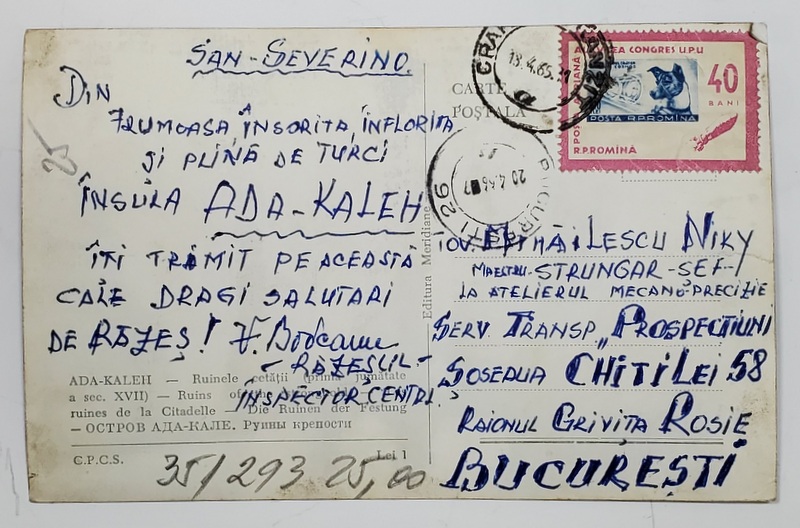 SAN-SEVERINO
DIN
FRUMOASA, ÎNSORITA, ÎNFLORITA
ȘI PLINĂ DE TURCI
ÎNSULA ADA-KALEH
ÎTI TRĂMIT PE ACEASTĂ
CALE DRAGI SALUTARI
DE RĂZEȘ!
- RĂZEȘUL -
ÎNSPECTOR CENTR.
ADA-KALEH — Ruinele cetății (prima jumătate
a sec. XVII) — Ruins of
ruines de la Citadelle — Die Ruinen der Festung
— ОСТРОВ АДА-КАЛЕ. Руины крепости
C.P.C.S.
Lei 1
35/293 25,00
25
Editura Meridiane
CARTE
POȘTALĂ
18.4.65
BUCUREȘTI 26
20.4.65
CONGRES U.P.U
40
BANI
POSTA R.P.ROMINA
R.P.ROMINĂ
TOV. MIHĂILESCU NIKY
MAESTRU-STRUNGAR-ȘEF-
LA ATELIERUL MECANO-PRECIZIE
SERV TRANSP „PROSPECTIUNI
SOSEAUA CHITILEI 58
RAIONUL GRIVIȚA ROSIE
BUCUREȘTI